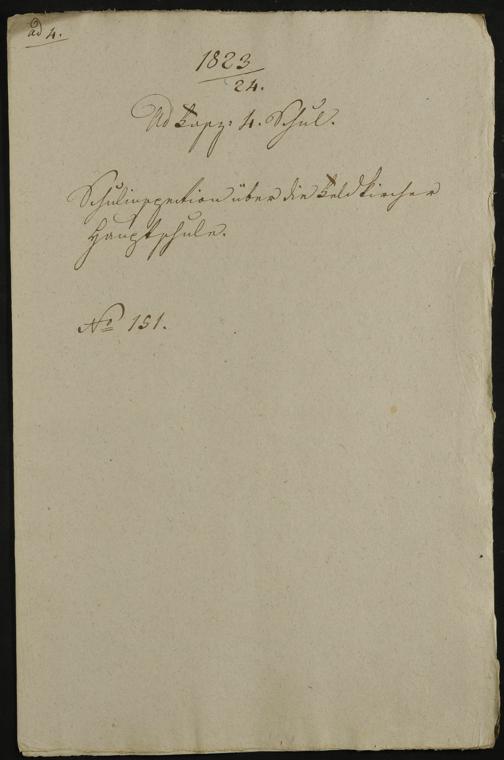 ad 4.
1823
24.
Ad Fasz: 4. Schul.
Schulinspection über die Feldkircher
Hauptschule.
No 151.